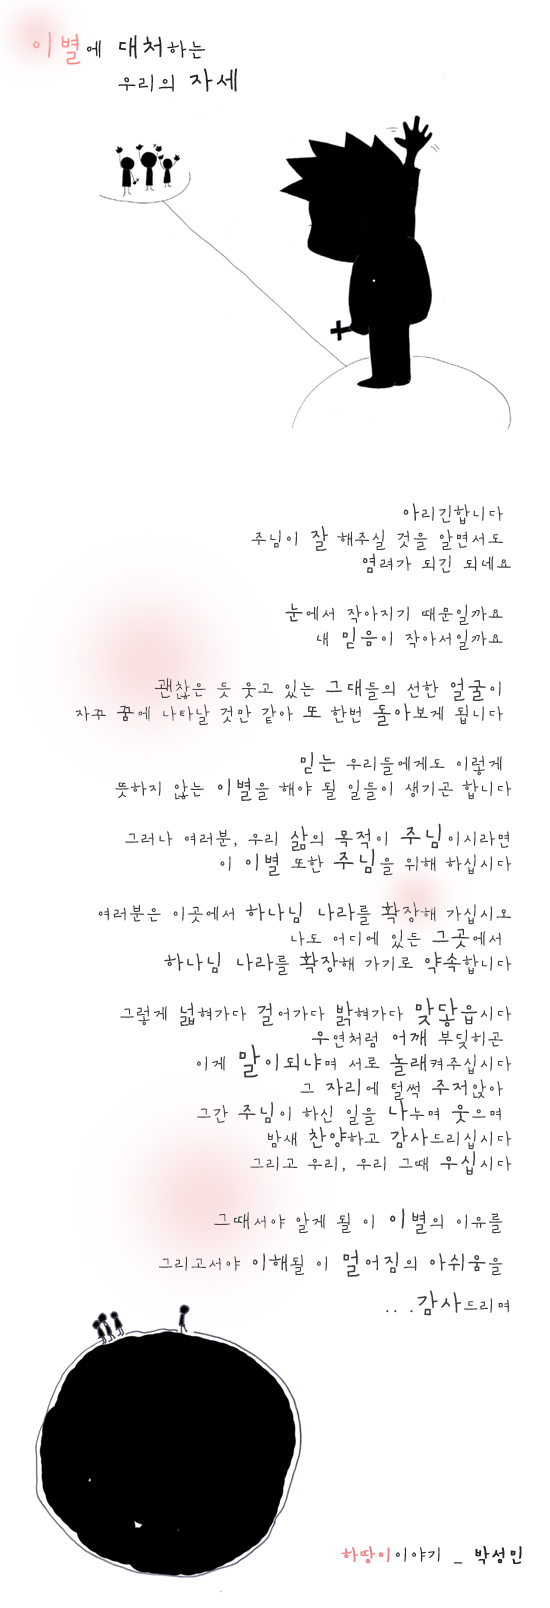 이별에 대처하는
우리의 자세
아리긴합니다
주님이 잘 해주실 것을 알면서도
염려가 되긴 되네요
눈에서 작아지기 때문일까요
내 믿음이 작아서일까요
괜찮은 듯 웃고 있는 그대들의 선한 얼굴이
자꾸 꿈에 나타날 것만 같아 또 한번 돌아보게 됩니다
믿는 우리들에게도 이렇게
뜻하지 않는 이별을 해야 될 일들이 생기곤 합니다
그러나 여러분, 우리 삶의 목적이 주님이시라면
이 이별 또한 주님을 위해 하십시다
여러분은 이곳에서 하나님 나라를 확장해 가십시오
나도 어디에 있든 그곳에서
하나님 나라를 확장해 가기로 약속합니다
그렇게 넓혀가다 걸어가다 밝혀가다 맞닿읍시다
우연처럼 어깨 부딪히곤
이게 말이되냐며 서로 놀래켜주십시다
그 자리에 털썩 주저앉아
그간 주님이 하신 일을 나누며 웃으며
밤새 찬양하고 감사드리십시다
그리고 우리, 우리 그때 우십시다
그때서야 알게 될 이 이별의 이유를
그리고서야 이해될 이 멀어짐의 아쉬움을
.. .감사드리며
하땅이이야기 _ 박성민